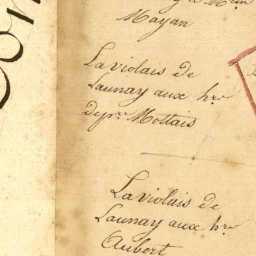 Mayan
La violais de
Launay aux hrs
de pre Mottais
La violais de
Launay aux hrs
Aubert